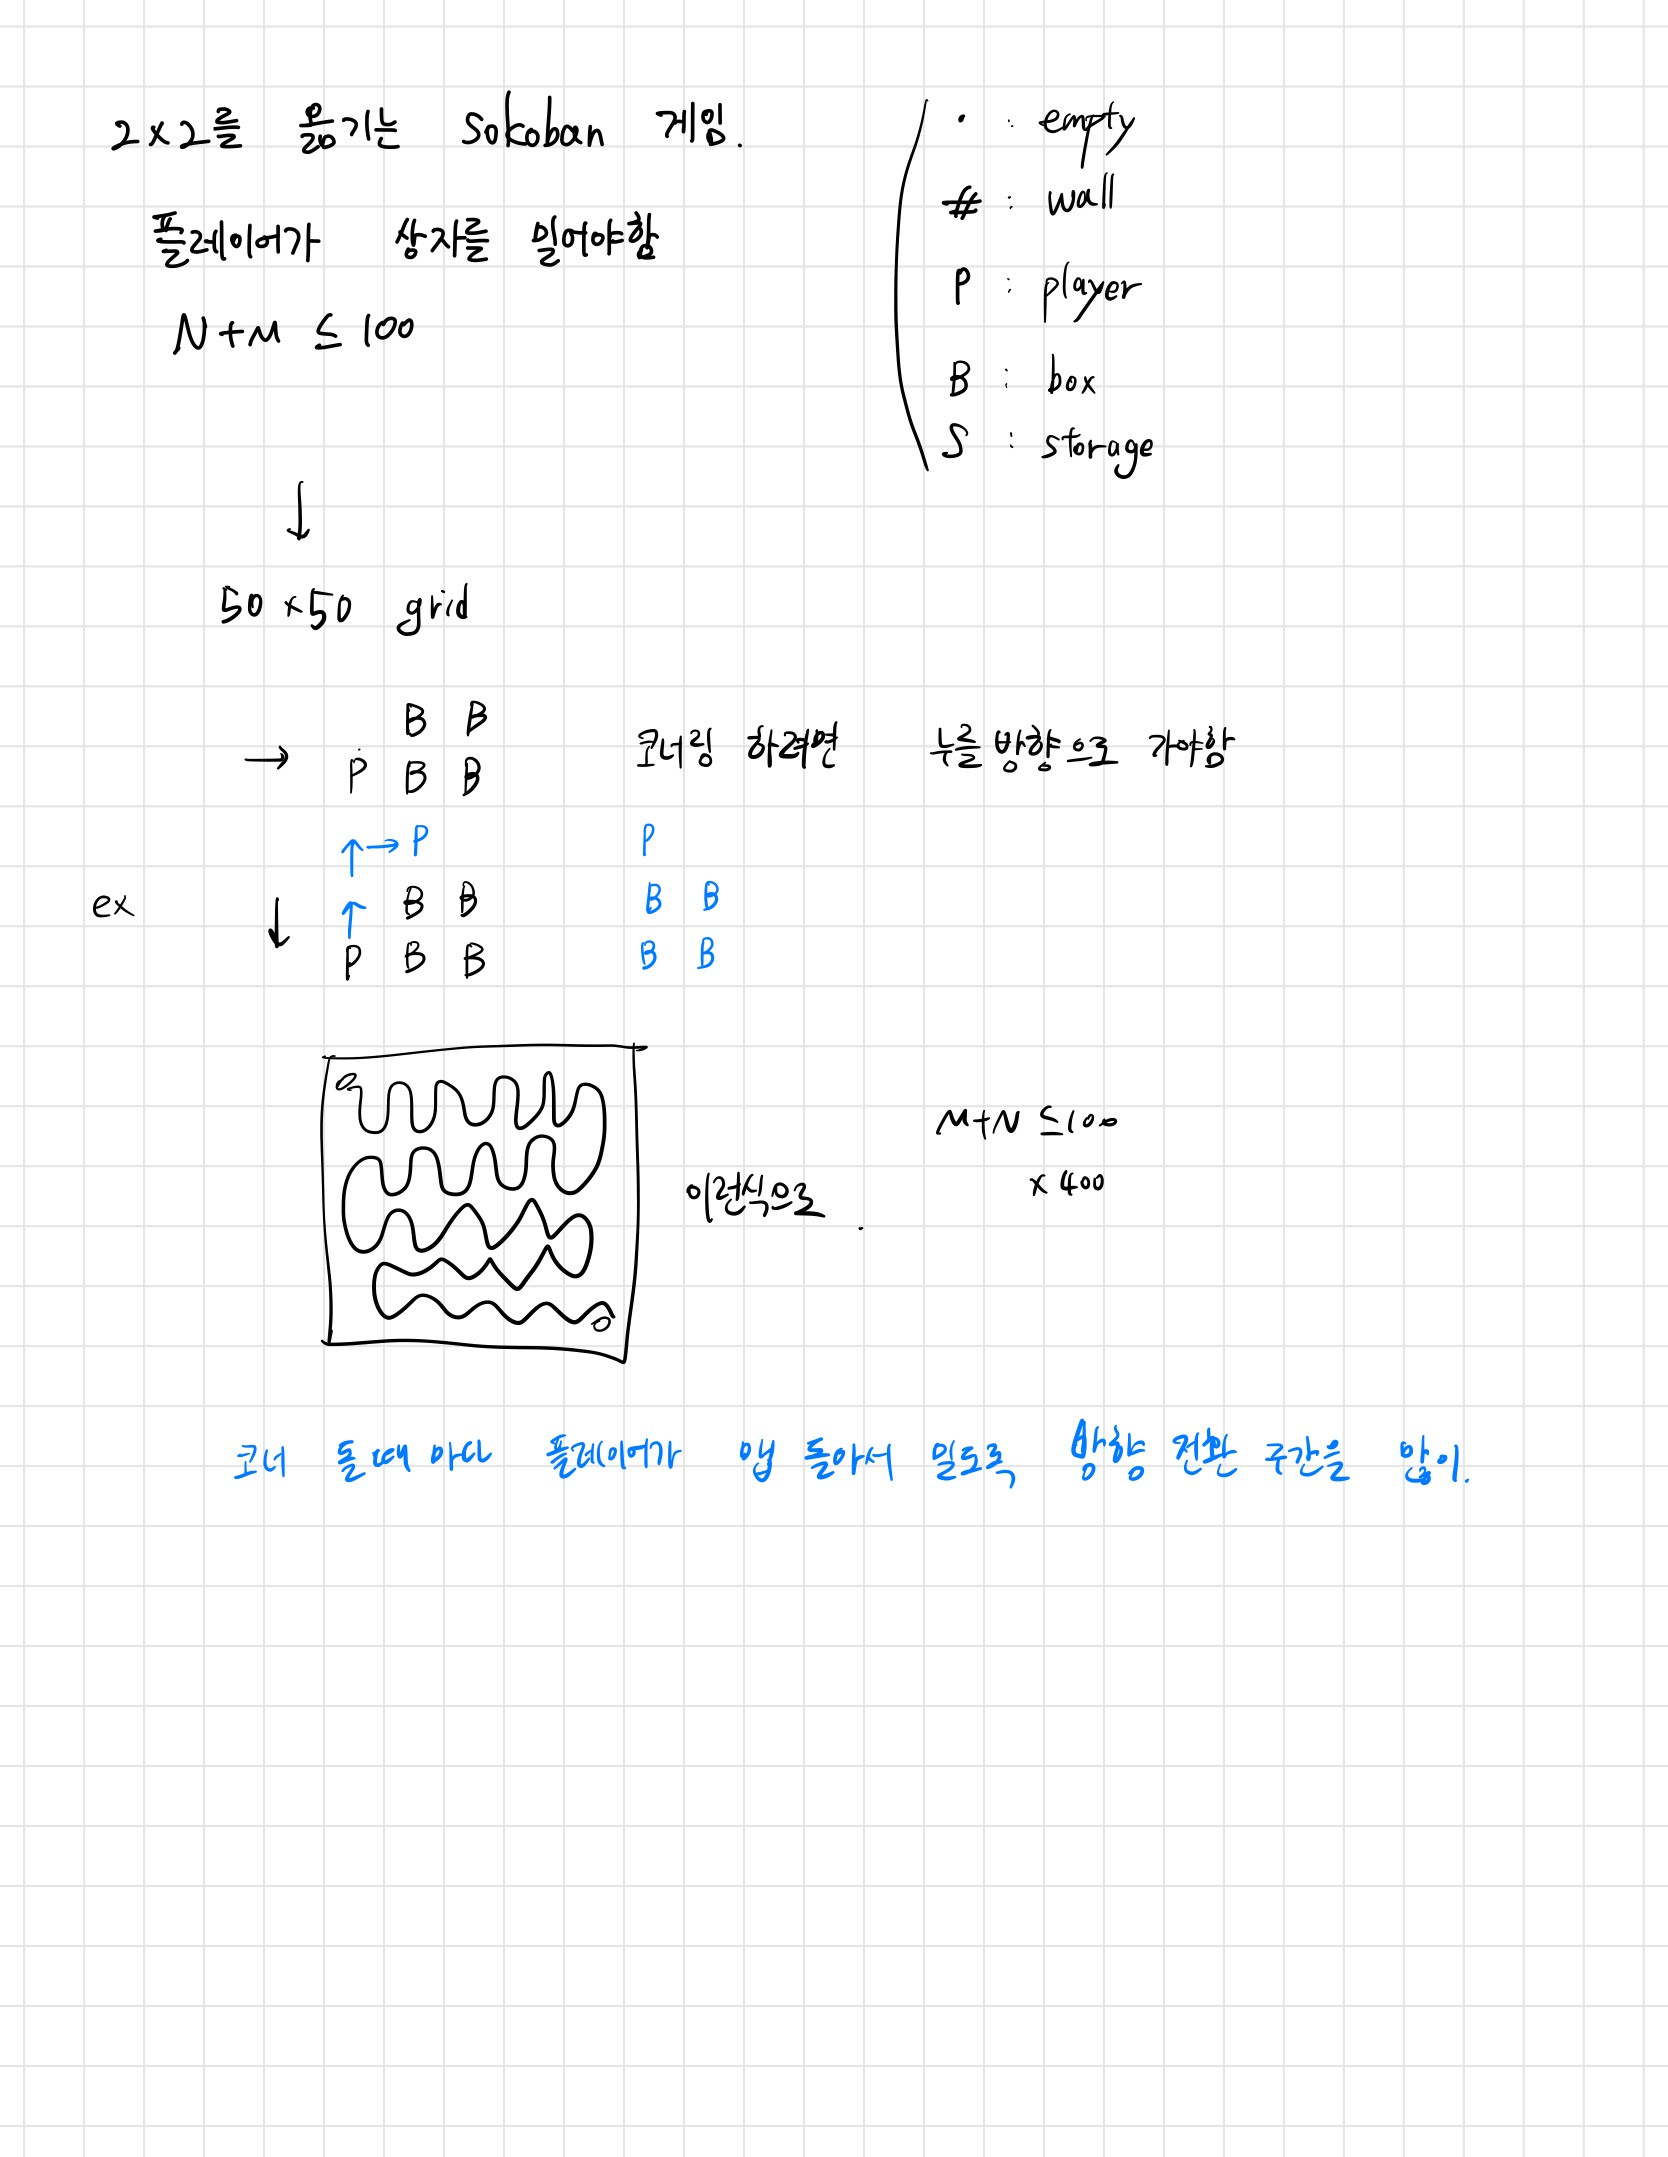 2×2를 옮기는 Sokoban 게임.
플레이어가 상자를 밀어야함
N+M ≤ 100
· : empty
# : wall
P : player
B : box
S : storage
↓
50×50 grid
B B
→ P B B
코너링 하려면 누를 방향으로 가야함
↑→ P
ex ↓ ↑ B B
P B B
P
B B
B B
이런식으로.
M+N ≤100
×400
코너 돌 때 마다 플레이어가 맵 돌아서 밀도록 방향 전환 구간을 많이.